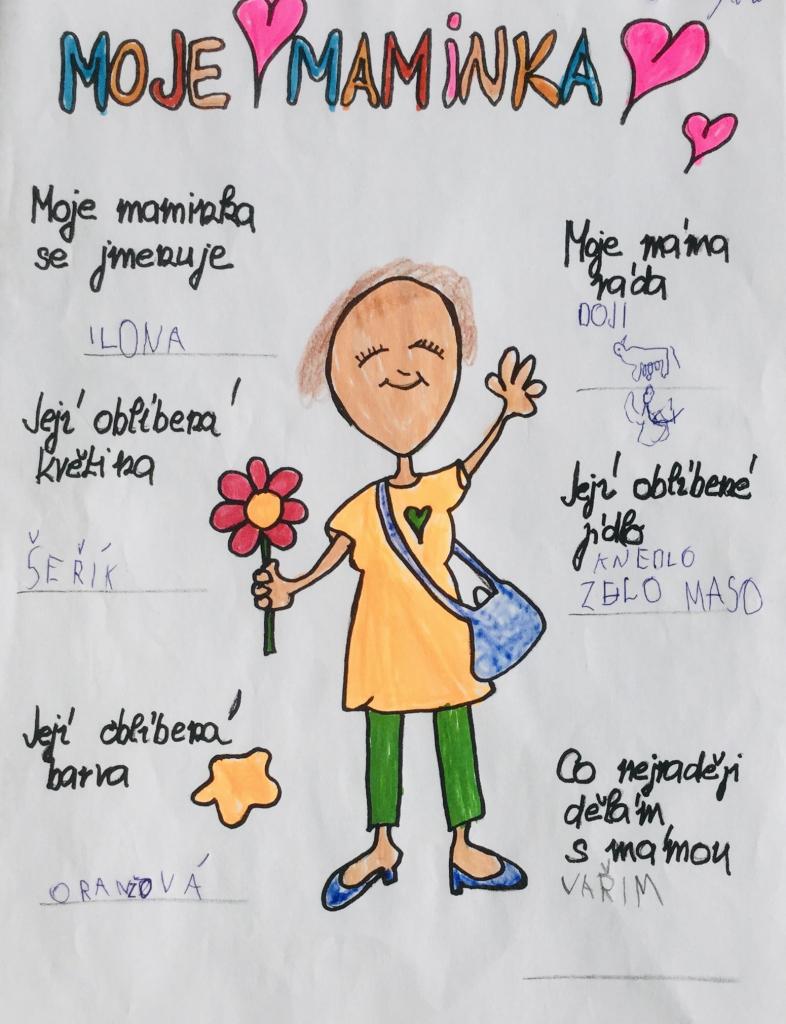 MOJE MAMINKA
Moje maminka
se jmenuje
ILONA
Její oblíbená
květina
ŠEŘÍK
Její oblíbená
barva
ORANŽOVÁ
Moje máma
ráda
DOJI
Její oblíbené
jídlo
KNEDLO
ZELO MASO
Co nejraději
dělám
s mámou
VAŘIM